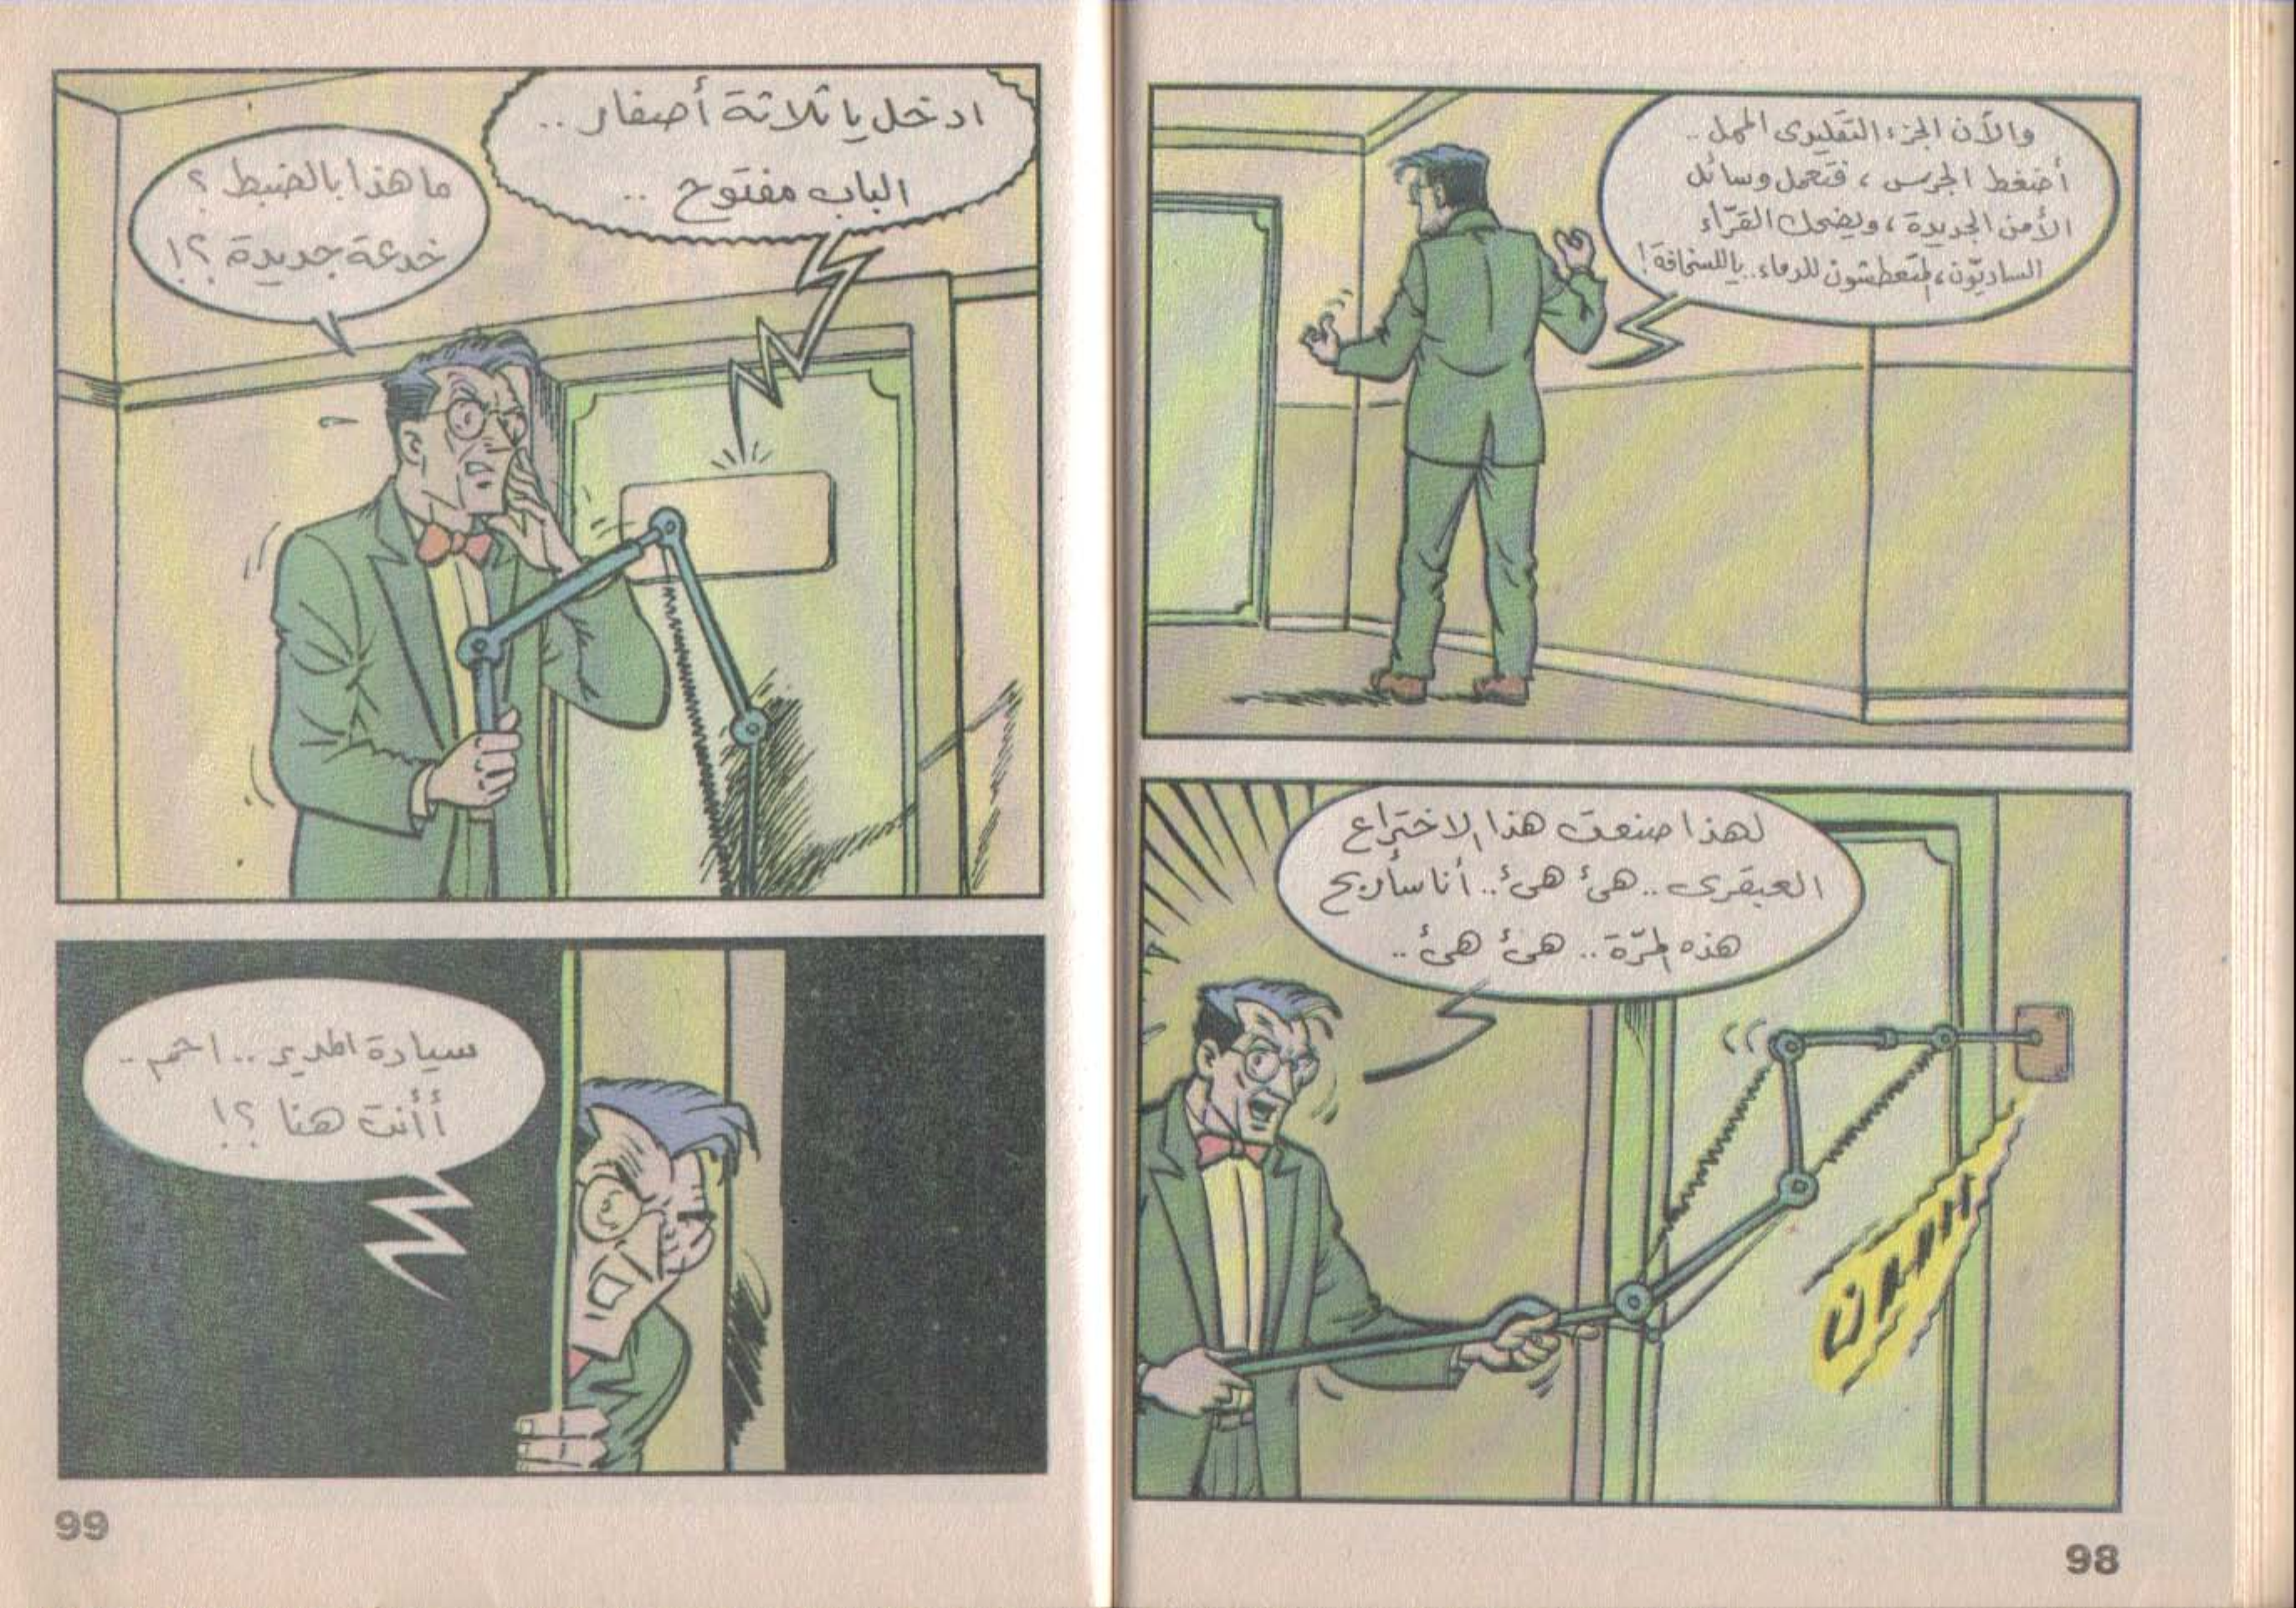 والآن الجزء التقليدى الممل ..
أضغط الجرس ، فتعمل وسائل
الأمن الجديدة ، ويضحك القرّاء
الساديّون ، المتعطشون للدماء .. ياللسخافة !
لهذا صنعت هذا الاختراع
العبقرى .. هىء هىء .. أنا سأربح
هذه المرّة .. هىء هىء ..
98
ادخل يا ثلاثة أصفار ..
الباب مفتوح ..
ما هذا بالضبط ؟
خدعة جديدة ؟!
سيادة المدير .. احم ..
أأنت هنا ؟!
99